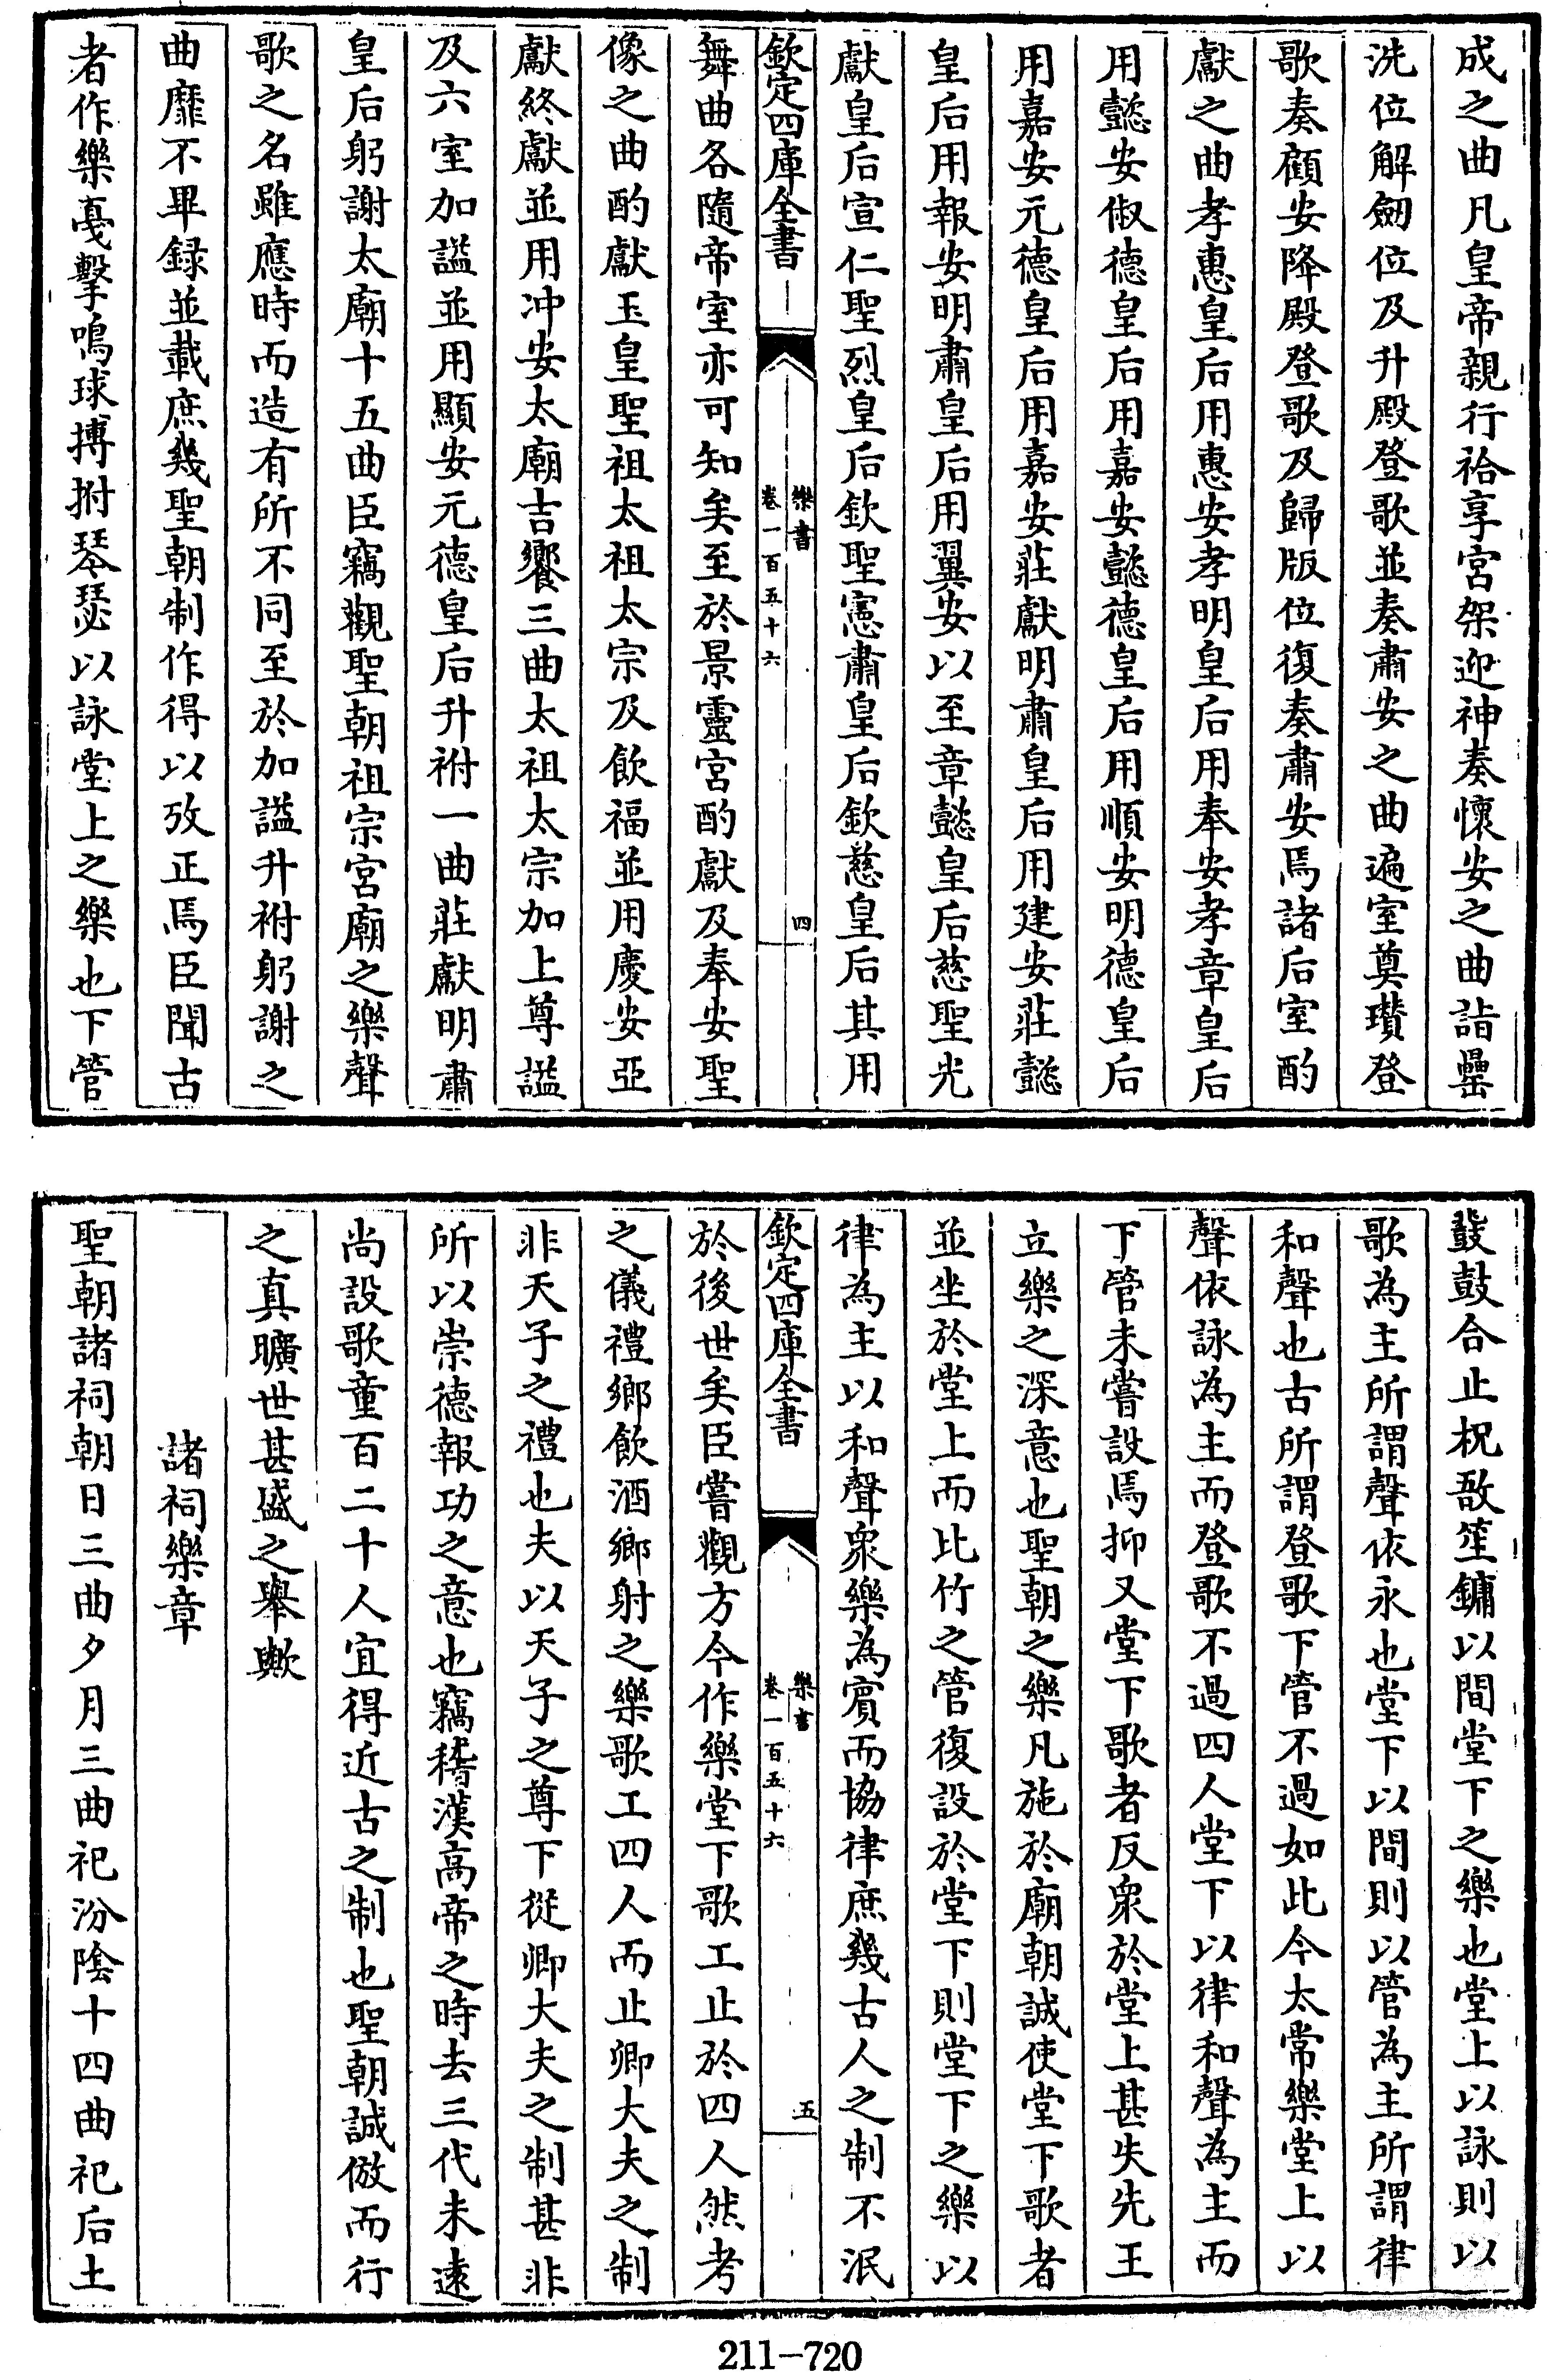 成之曲凡皇帝親行祫享宮架迎神奏懷安之曲詣罍
洗位解劒位及升殿登歌並奏肅安之曲遍室奠瓚登
歌奏顧安降殿登歌及歸版位復奏肅安焉諸后室酌
獻之曲孝惠皇后用惠安孝明皇后用奉安孝章皇后
用懿安俶德皇后用嘉安懿德皇后用順安明德皇后
用嘉安元德皇后用嘉安莊獻明肅皇后用建安莊懿
皇后用報安明肅皇后用翼安以至章懿皇后慈聖光
獻皇后宣仁聖烈皇后欽聖憲肅皇后欽慈皇后其用
欽定四庫全書
樂書
卷一百五十六
四
舞曲各隨帝室亦可知矣至於景靈宮酌獻及奉安聖
像之曲酌獻玉皇聖祖太祖太宗及飲福並用慶安亞
獻終獻並用冲安太廟吉饗三曲太祖太宗加上尊謚
及六室加謚並用顯安元德皇后升祔一曲莊獻明肅
皇后躬謝太廟十五曲臣竊觀聖朝祖宗宮廟之樂聲
歌之名雖應時而造有所不同至於加謚升祔躬謝之
曲靡不畢録並載庶幾聖朝制作得以攷正焉臣聞古
者作樂戞擊鳴球搏拊琴瑟以詠堂上之樂也下管
鼗鼓合止柷敔笙鏞以間堂下之樂也堂上以詠則以
歌為主所謂聲依永也堂下以間則以管為主所謂律
和聲也古所謂登歌下管不過如此今太常樂堂上以
聲依詠為主而登歌不過四人堂下以律和聲為主而
下管未嘗設焉抑又堂下歌者反衆於堂上甚失先王
立樂之深意也聖朝之樂凡施於廟朝誠使堂下歌者
並坐於堂上而比竹之管復設於堂下則堂下之樂以
律為主以和聲衆樂為賓而協律庶幾古人之制不泯
欽定四庫全書
樂書
卷一百五十六
五
於後世矣臣嘗觀方今作樂堂下歌工止於四人然考
之儀禮鄉飲酒鄉射之樂歌工四人而止卿大夫之制
非天子之禮也夫以天子之尊下從卿大夫之制甚非
所以崇德報功之意也竊稽漢高帝之時去三代未遠
尚設歌童百二十人宜得近古之制也聖朝誠倣而行
之真曠世甚盛之舉歟
諸祠樂章
聖朝諸祠朝日三曲夕月三曲祀汾陰十四曲祀后土
211-720